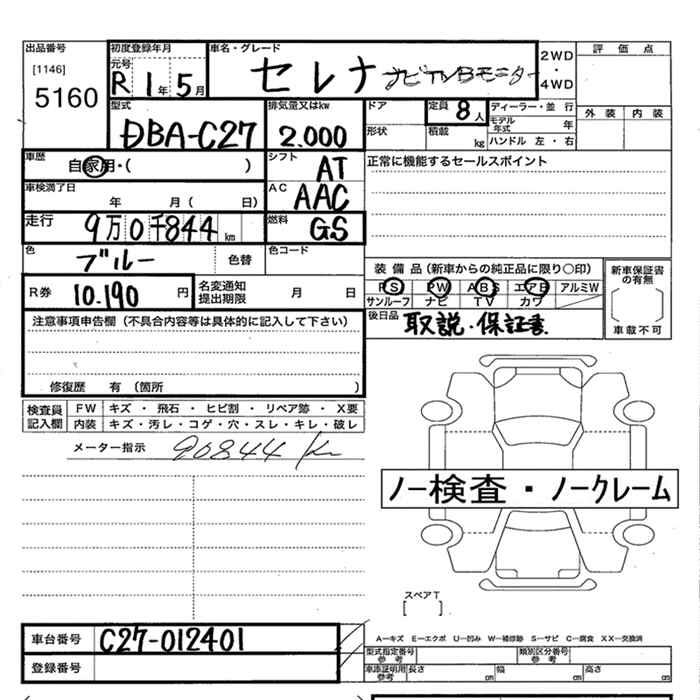 出品番号 初度登録年月 車名・グレード 2WD 評価点
[1146] 元号 セレナ ナビTVBモニター ・
5160 R1年5月 4WD
型式 排気量又はkw ドア 定員 8人 ディーラー・並行 外装 内装
DBA-C27 2.000 形状 積載 kg モデル年式 年
ハンドル 左・右
車歴 自家用・( ) シフト AT 正常に機能するセールスポイント
車検満了日 年 月( 日) AC AAC
走行 9万0千844km 燃料 GS
色 ブルー 色替 色コード
装備品(新車からの純正品に限り○印) 新車保証書の有無
R券 10.190円 名変通知提出期限 月 日 PS PW ABS エアB アルミW
サンルーフ ナビ TV カワ
注意事項申告欄(不具合内容等は具体的に記入して下さい) 後日品 取説・保証書 車載不可
修復歴 有(箇所 )
検査員 FW キズ・飛石・ヒビ割・リペア跡・X要
記入欄 内装 キズ・汚レ・コゲ・穴・スレ・キレ・破レ
メーター指示 90844 Km
ノー検査・ノークレーム
スペアT
[ ]
車台番号 C27-012401 A-キズ E-エクボ U-凹み W-補修跡 S-サビ C-腐食 XX-交換済
登録番号 型式指定番号 参考 類別区分番号 参考
車庫証明用 参考 長さ cm 幅 cm 高さ cm